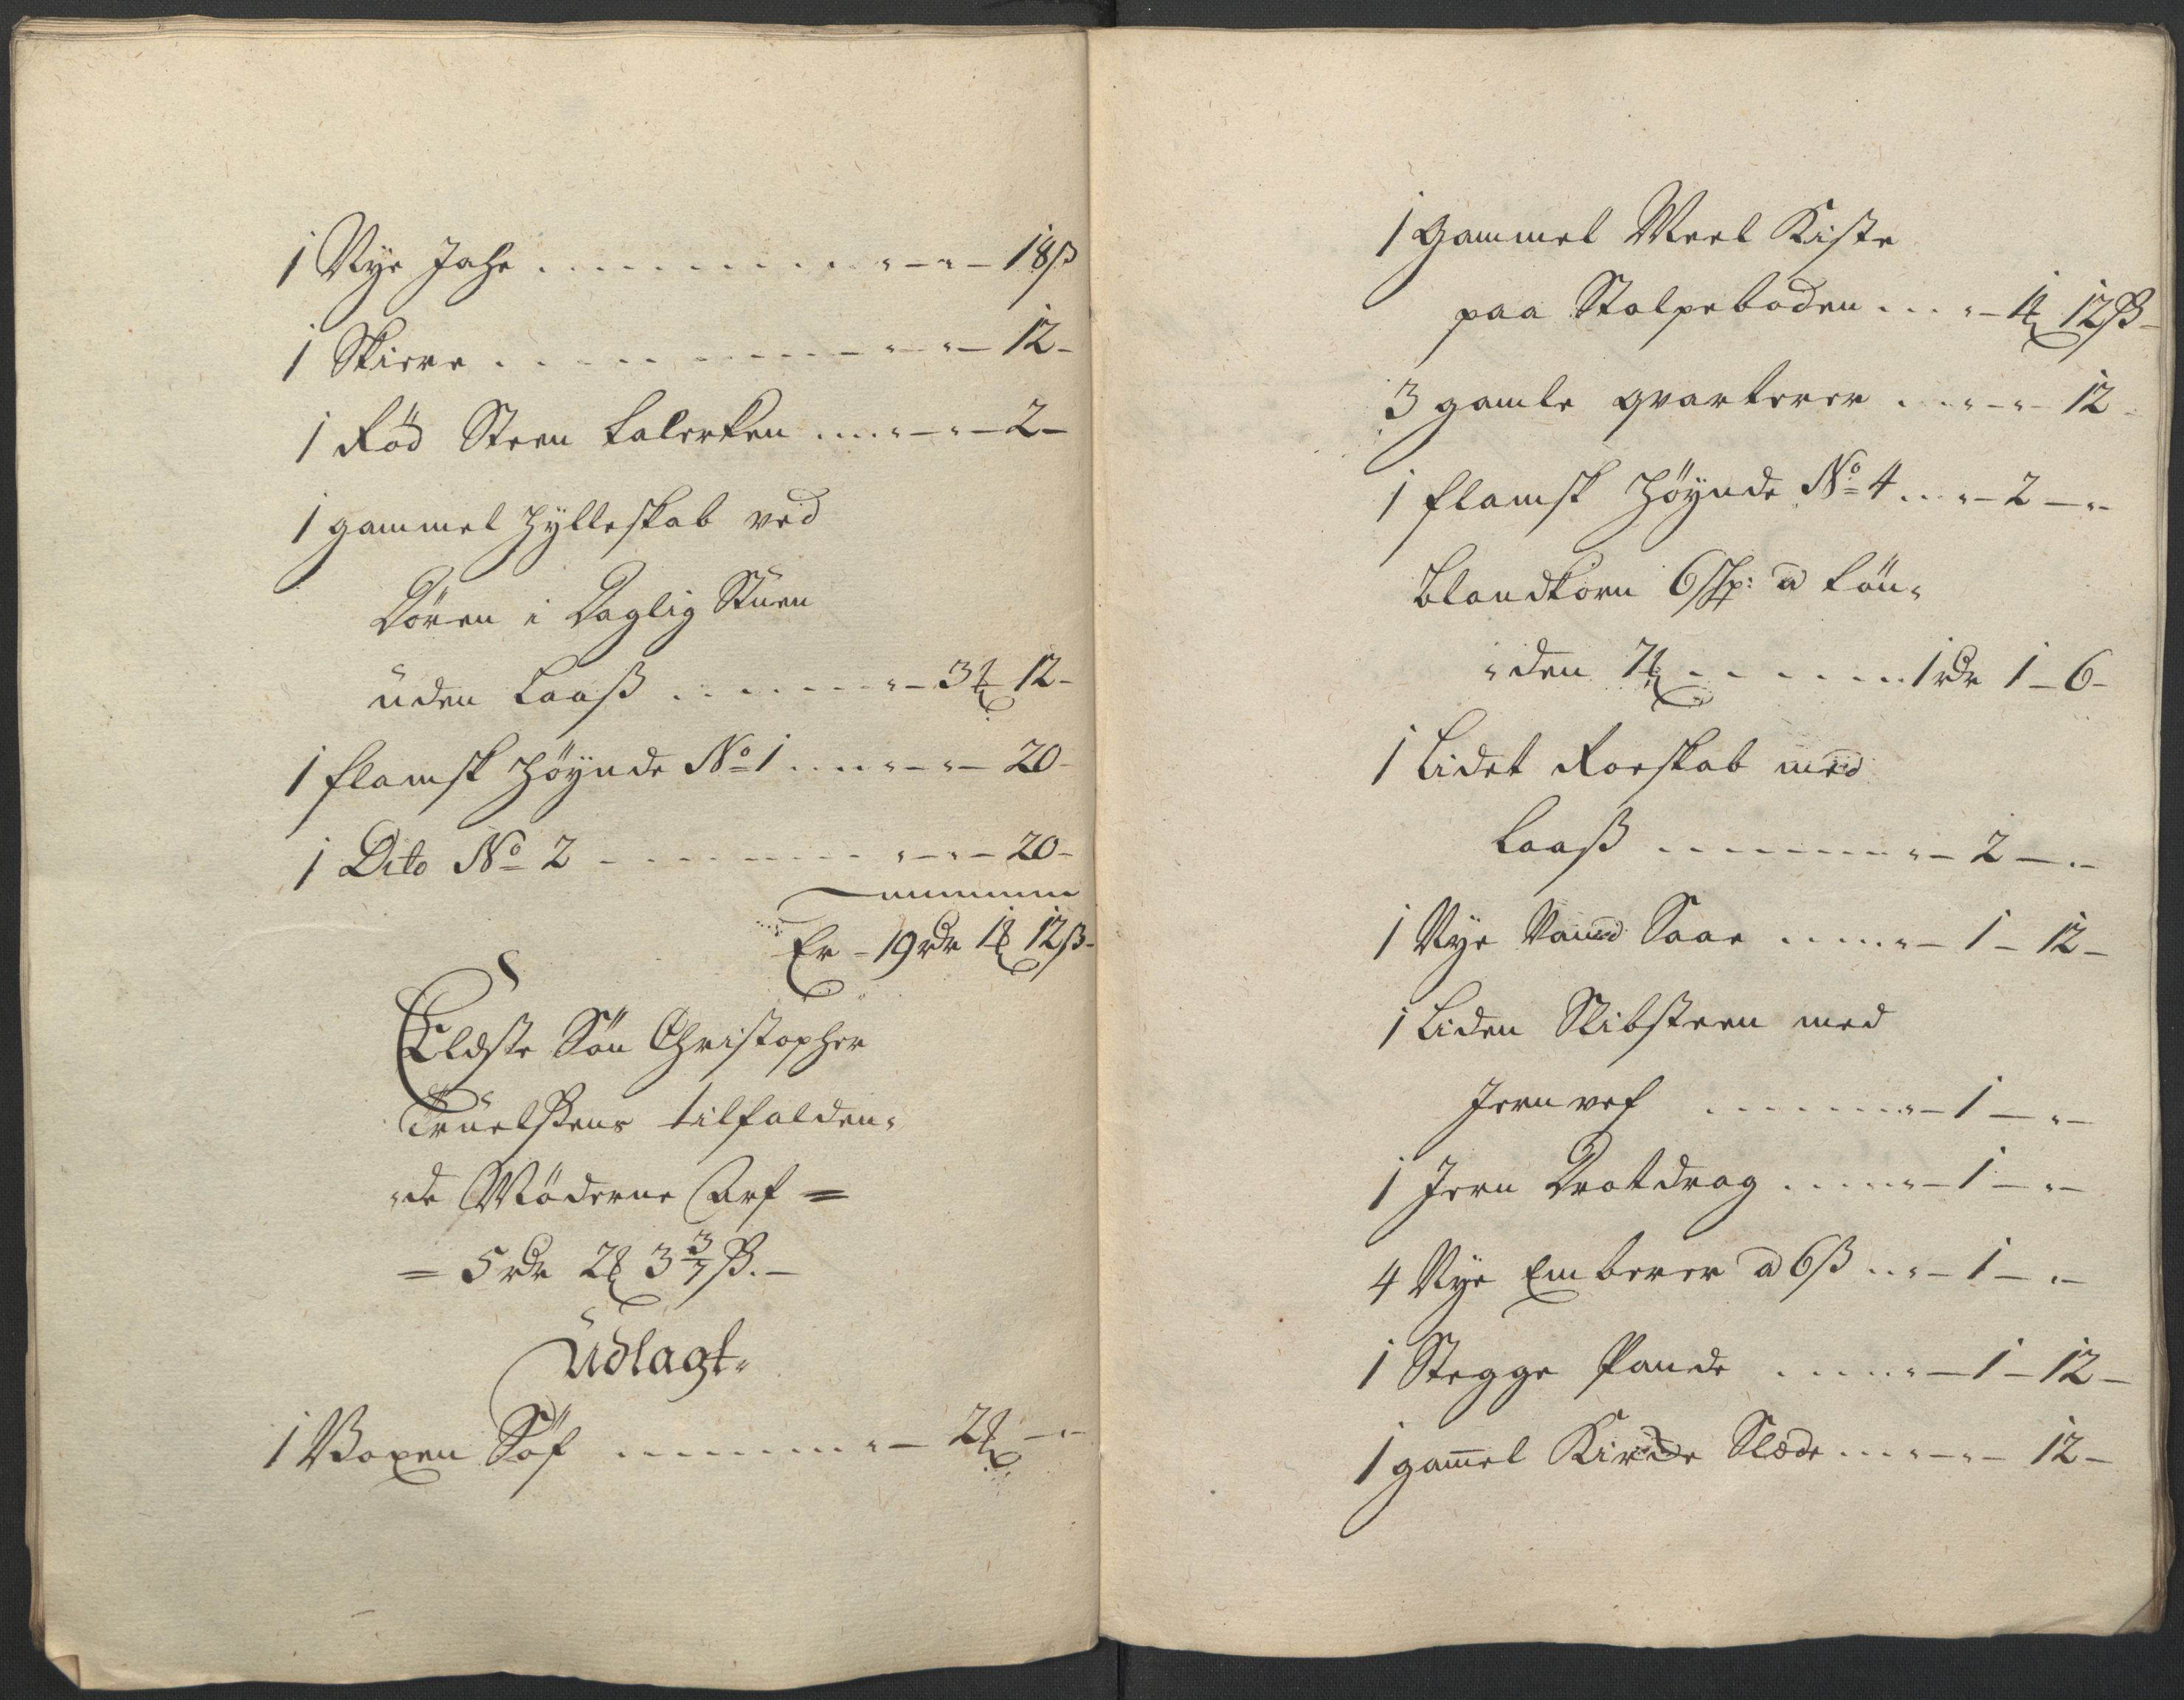 1 Nye Jahe . . . . . . . . . . „ – „ – 18ß
1 Skiere . . . . . . . . . . „ – „ – 12 –
1 Rød Steen talerken . . . . „ – „ – 2 –
1 gammel Hÿlleskab ved
Døren i Daglig Stuen
uden Laaß . . . . . . . „ – 3 ꝑ 12 –
1 flamsk Höÿnde No 1 . . . . „ – „ – 20 –
1 Dito No 2 – . . . . . . . „ – „ – 20 –
Er – 19 rdr 1 ꝑ 12ß –
Eldste Søn Christopher
Truelssens tilfalden„
„de Møderne Arf =
= 5 rdr 2 ꝑ 3 3/7 ß. –
Udlagt„
1 Voxen Söf . . . . . . . . „ – 2 ꝑ – „ –
1 Gammel Meel Kiste
paa Stolpeboden . . . „ – 1 ꝑ 12ß –
3 gamle qvarterer . . . „ – „ – 12 –
1 flamsk Höÿnde No 4 . . . „ – 2 – „ –
Blandkorn 6 Skp: a tön„
„den 7 ꝑ . . . . . . . 1 rdr 1 – 6 –
1 Lidet Roeskab med
Laaß . . . . . . . . „ – 2 – „ –
1 Nye Vand Saae . . . . . „ – 1 – 12 –
1 Liden Slibsteen med
Jern vef . . . . . . . „ – 1 – „ –
1 Jern Dratdrag . . . . . „ – 1 – „ –
4 Nye Emberer a 6ß . . „ – 1 – „ –
1 Stegge Pande . . . . . „ – 1 – 12 –
1 gam̅el Slæde . . . „ – „ – 12 –